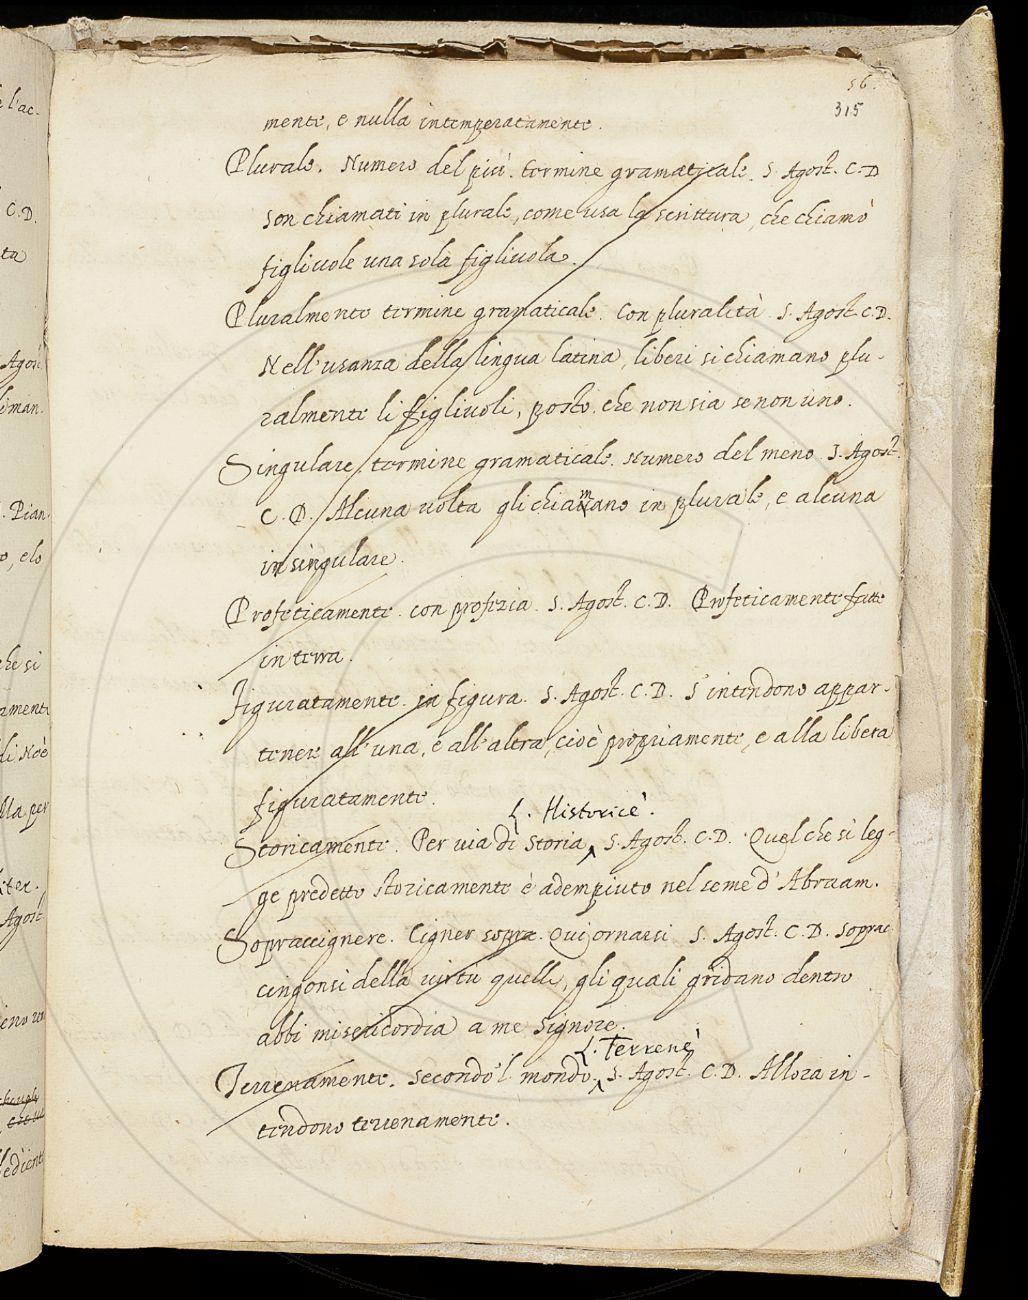 56.
315
mente, e nulla intemperatamente.
Plurale. Numero del più. termine gramaticale. S. Agost. C. D
son chiamati in plurale, come usa la scrittura, che chiamò
figliuole una sola figliuola.
Pluralmente termine gramaticale. Con pluralità. S. Agost. C. D.
Nell'usanza della lingua latina, liberi si chiamano plu-
ralmente li figliuoli, posto, che non sia se non uno.
Singulare, termine gramaticale. Numero del meno. S. Agost.
C. D. Alcuna volta gli chiamano in plurale, e alcuna
in singulare.
Profeticamente. con profezia. S. Agost. C. D. Profeticamente fatte
in terra.
Figuratamente. in figura. S. Agost. C. D. S'intendono appar-
tenere all'una, e all'altra, cioè propriamente, e alla libera
figuratamente.
L. Historicè.
Storicamente. Per via di Storia, S. Agost. C. D. Quel che si leg-
ge predetto storicamente è adempiuto nel seme d'Abraam.
Sopraccignere. Cigner sopra. Qui ornarsi S. Agost. C. D. Soprac
cingonsi della virtu quelli, gli quali gridano dentro
abbi misericordia a me Signore.
L. Terrenè
Terrenamente. Secondo'l mondo, S. Agost. C. D. Allora in-
tendono terrenamente.
l'ac-
C. D.
ta
Agost.
iman.
. Pian-
o, e lo
he si
amente
di Noè
lla per
iter.
Agost.